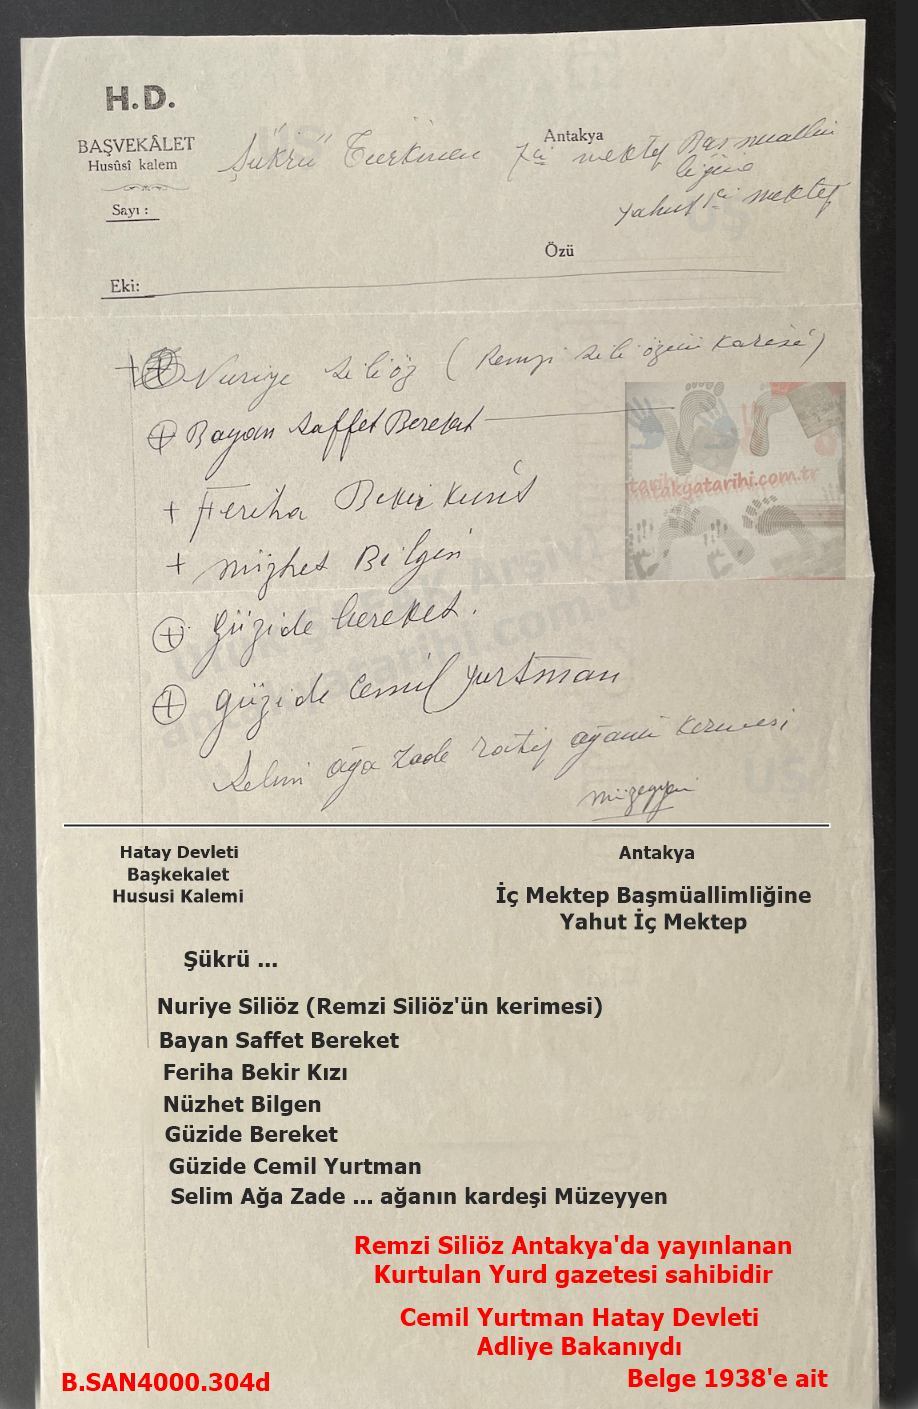 H.D.
BAŞVEKÂLET
Hususî kalem
Antakya
Şükrü Türkmen
mektep Başmuallim
liğine
yahut mektep
Sayı :
Özü
Eki:
Nuriye Siliöz (Remzi Siliözün
+ Bayan Saffet Bereket
+ Feriha Bekir
+ Nüzhet Bilgen
+ Güzide bereket.
+ Güzide Cemil Yurtman
Selim ağa zade ağanın
Müzeyyen
antakyatarihi.com.tr
Arşivi
antakyatarihi.com.tr
Hatay Devleti
Başkekalet
Hususi Kalemi
Antakya
İç Mektep Başmüallimliğine
Yahut İç Mektep
Şükrü ...
Nuriye Siliöz (Remzi Siliöz'ün kerimesi)
Bayan Saffet Bereket
Feriha Bekir Kızı
Nüzhet Bilgen
Güzide Bereket
Güzide Cemil Yurtman
Selim Ağa Zade ... ağanın kardeşi Müzeyyen
Remzi Siliöz Antakya'da yayınlanan
Kurtulan Yurd gazetesi sahibidir
Cemil Yurtman Hatay Devleti
Adliye Bakanıydı
B.SAN4000.304d
Belge 1938'e ait